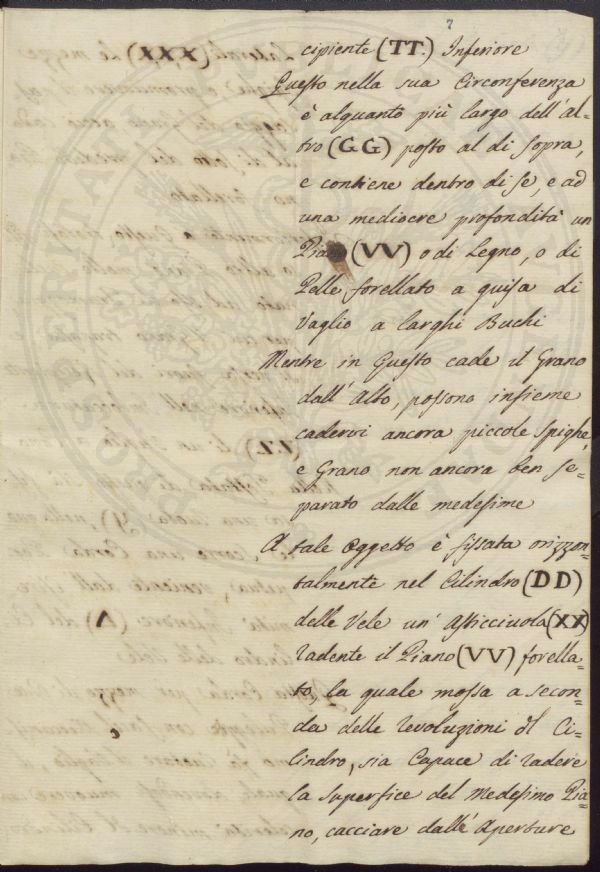 7
cipiente (TT.) Inferiore
Questo nella sua Circonferenza
è alquanto più largo dell'al=
tro (GG) posto al di sopra,
e contiene dentro di se, e ad
una mediocre profondità un
Piano (VV) o di Legno, o di
Pelle forellato a guisa di
Vaglio a larghi Buchi
Mentre in Questo cade il Grano
dall'Alto, possono insieme
cadervi ancora piccole Spighe,
e Grano non ancora ben se=
parato dalle medesime
A tale Oggetto è fissata orizzon=
talmente nel Cilindro (DD)
delle Vele un' Assicciuola (XX)
radente il Piano (VV) forella=
to, la quale mossa a secon=
da delle revoluzioni del Ci=
lindro, sia Capace di radere
la Superfice del Medesimo Pia=
no, cacciare dalle Aperture